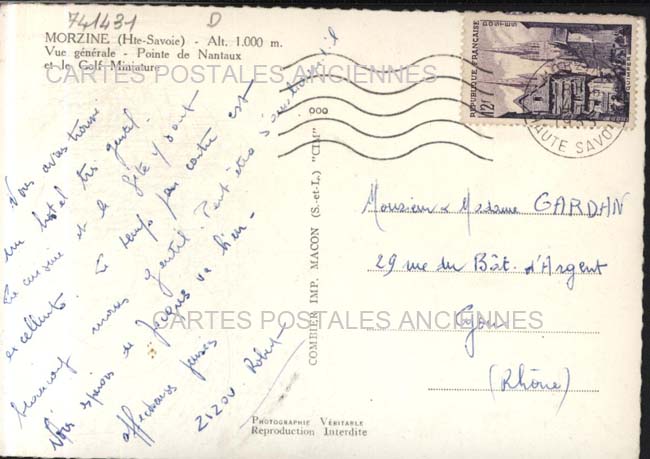 741431 D
MORZINE (Hte-Savoie) - Alt. 1.000 m.
Vue générale - Pointe de Nantaux
et le Golf Miniature
CARTES POSTALES ANCIENNES
Nous avons trouvé
un hôtel très gentil.
La cuisine et le gîte y sont
excellents. Le temps par contre est
beaucoup moins gentil. Peut être s'améliorera-t-il
Nous espérons que Jacques va bien
affectueuses pensées
ZIZOU Robert
COMBIER IMP. MACON (S.-et-L.) "CIM"
REPUBLIQUE FRANÇAISE
POSTES
12F
QUIMPER
HAUTE SAVOIE
Monsieur & Madame GARDAN
29 rue du Bât. d'Argent
Lyon
(Rhône)
CARTES POSTALES ANCIENNES
PHOTOGRAPHIE VÉRITABLE
Reproduction Interdite